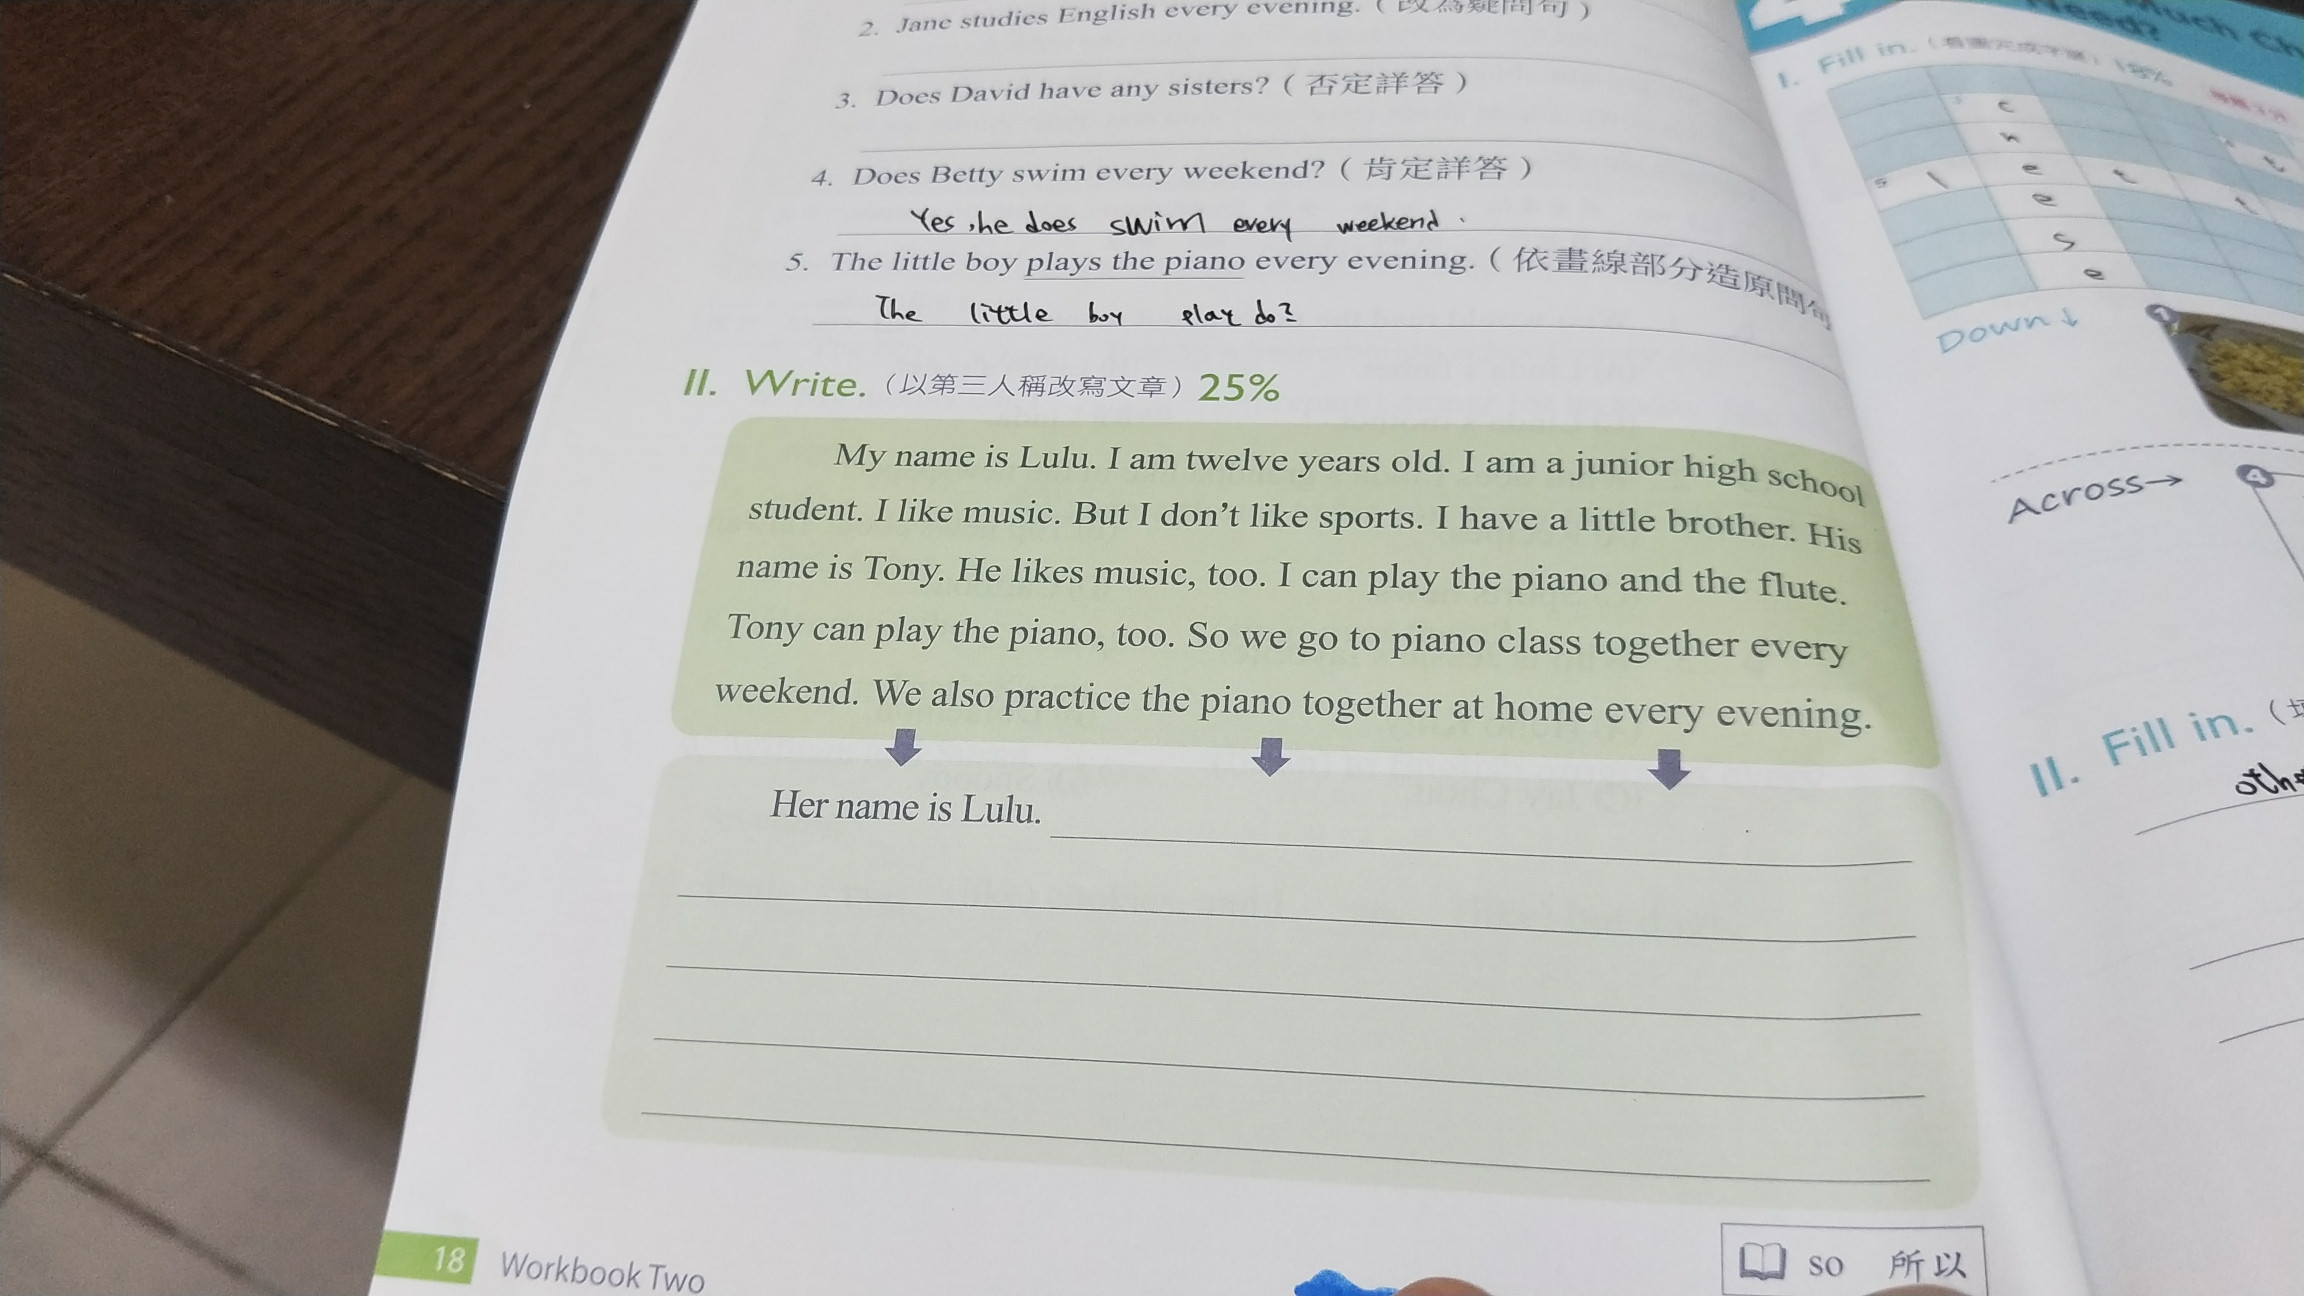 2. Jane studies English every evening. (改為疑問句)
3. Does David have any sisters? (否定詳答)
4. Does Betty swim every weekend? (肯定詳答)
Yes, he does swim every weekend.
5. The little boy plays the piano every evening. (依畫線部分造原問句
The little boy play do?
II. Write. (以第三人稱改寫文章) 25%
My name is Lulu. I am twelve years old. I am a junior high school
student. I like music. But I don't like sports. I have a little brother. His
name is Tony. He likes music, too. I can play the piano and the flute.
Tony can play the piano, too. So we go to piano class together every
weekend. We also practice the piano together at home every evening.
Her name is Lulu.
18 Workbook Two
so 所以
4
Much Ch
Need?
I. Fill in. 18%
c
h
s l e t
e
s
e
t
t
Down↓
1
Across→
4
II. Fill in. (